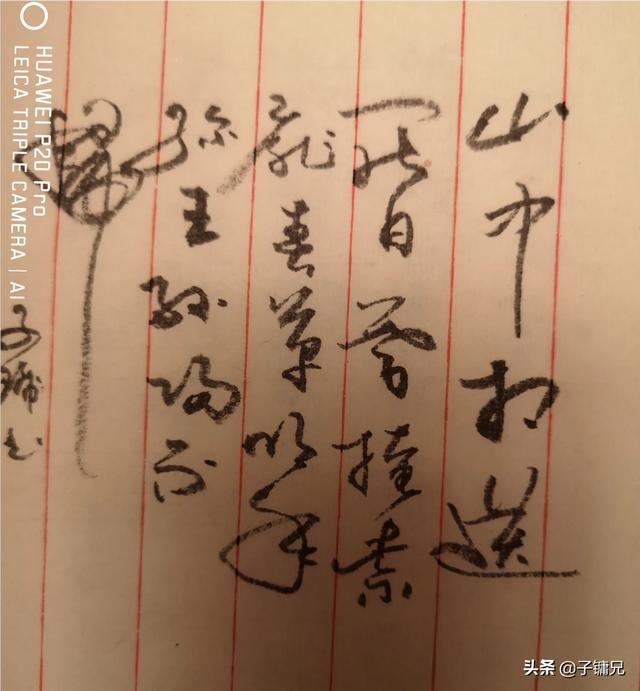 山中相送
罷日暮掩柴
扉春草明年
綠王孫歸不
歸
子镛书
HUAWEI P20 Pro
LEICA TRIPLE CAMERA | AI
头条 @子镛兄